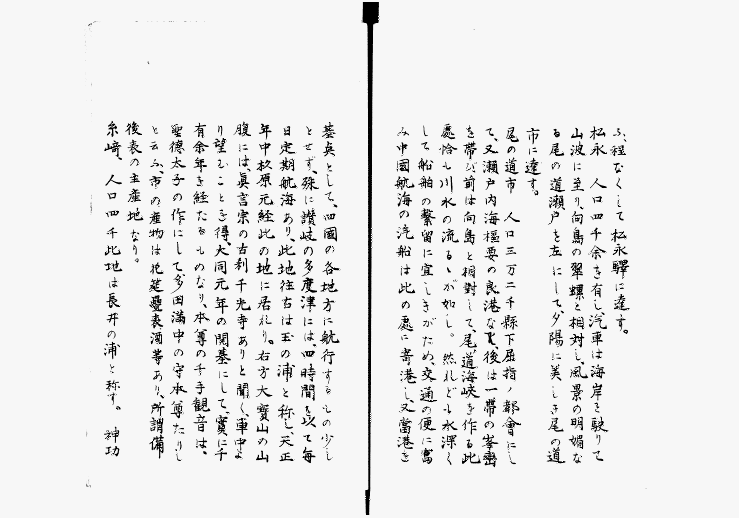 ふ、程なくして松永驛に達す。
松永　人口四千余を有し、汽車は海岸を駛りて
山波に至り、向島の翠螺と相対し、風景の明媚な
る尾の道瀬戸を左にして、夕陽に美しき尾の道
市に達す。
尾の道市　人口三万二千縣下屈指ノ都會にし
て、又瀬戸内海樞要の良港なり、後は一帶の峯巒
を帶び前は向島と相對して、尾道海峽を作る此
處恰も川水の流るゝが如し。然れども水深く
して船舶の繋留に宜しきがため、交通の便に富
み中國航海の汽船は此の處に寄港し又當港を
基点として、四國の各地方に航行するもの少し
とせず、殊に讃岐の多度津には、四時間を以て毎
日定期航海あり、此地往古は玉の浦と称し、天正
年中杉原元経此の地に居れり。右方大寶山の山
腹には、眞言宗の古刹千光寺ありと聞く、車中よ
り望むことを得、大同元年の開基にして、實に千
有余年を経たるものなり、本尊の千手観音は、
聖徳太子の作にして、多田満中の守本尊たりし
と云ふ、市の産物は花莚疊表酒等あり、所謂備
後表の主産地なり。
糸崎、人口四千此地は長井の浦と称す。神功